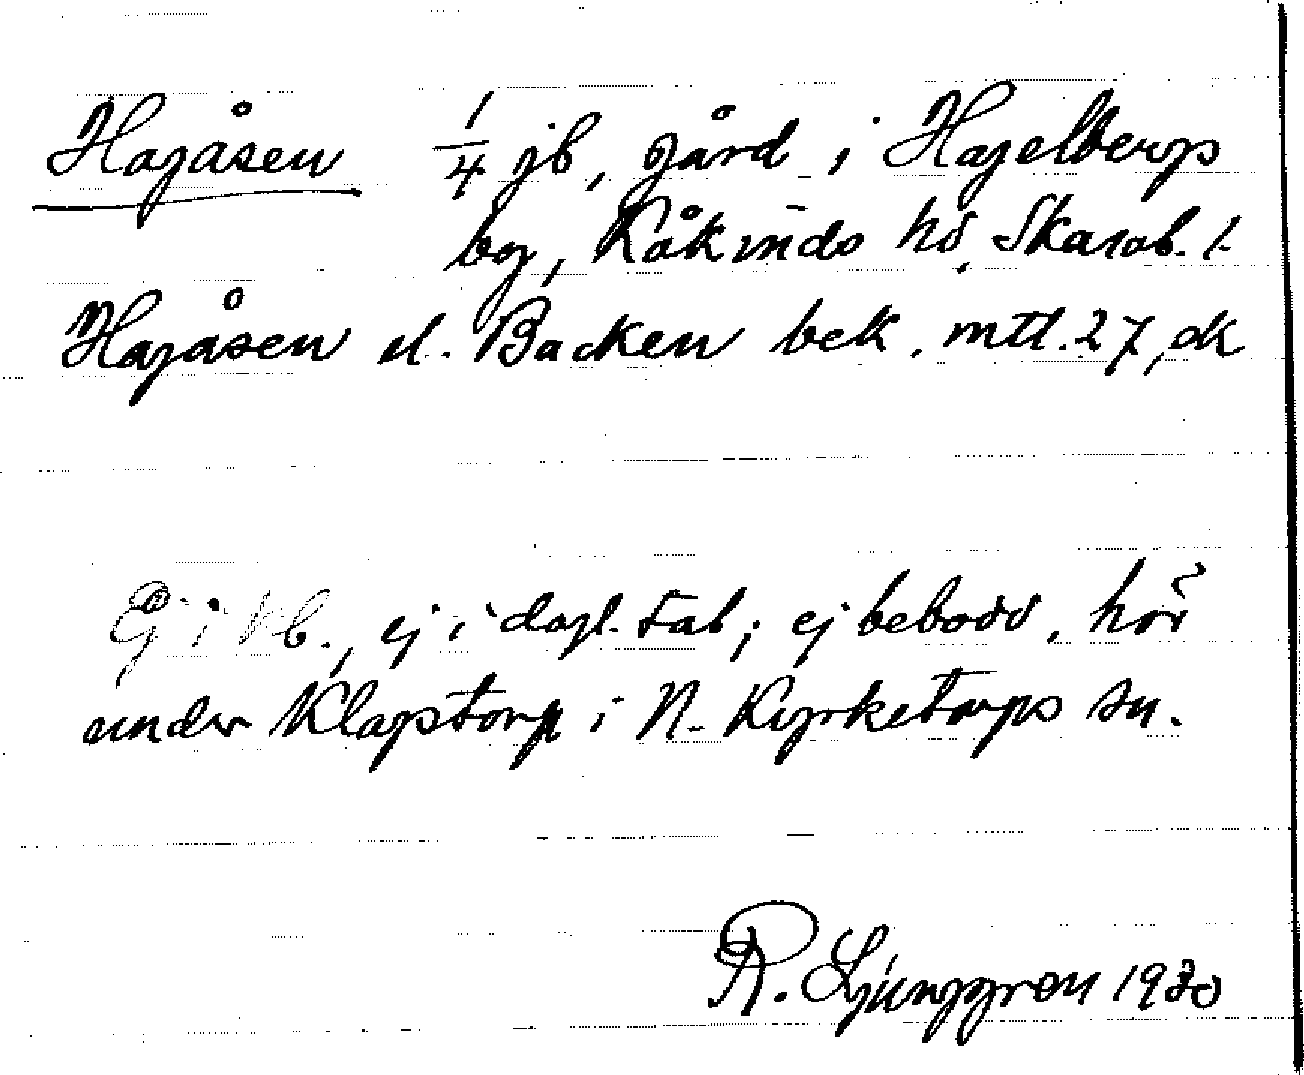 Hagåsen 1/4 jb, gård i Hagelbergs
by, Kåkinds hd, Skarab. l.
Hagåsen el. Backen bek. mtl. 27, ek
Ej i kb., ej i dagl. tal; ej bebodd, hör
under Klagstorp i N. Kyrketorps sn.
R. Ljunggren 1930